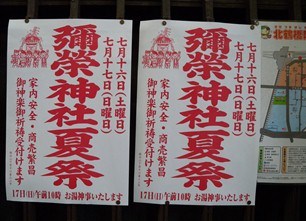 七月十六日(土曜日)
七月十七日(日曜日)
彌榮神社夏祭
家内安全・商売繁昌
御神楽御祈祷受付けます
17日(日)午前10時 お湯神事いたします
七月十六日(土曜日)
七月十七日(日曜日)
彌榮神社夏祭
家内安全・商売繁昌
御神楽御祈祷受付けます
17日(日)午前10時 お湯神事いたします